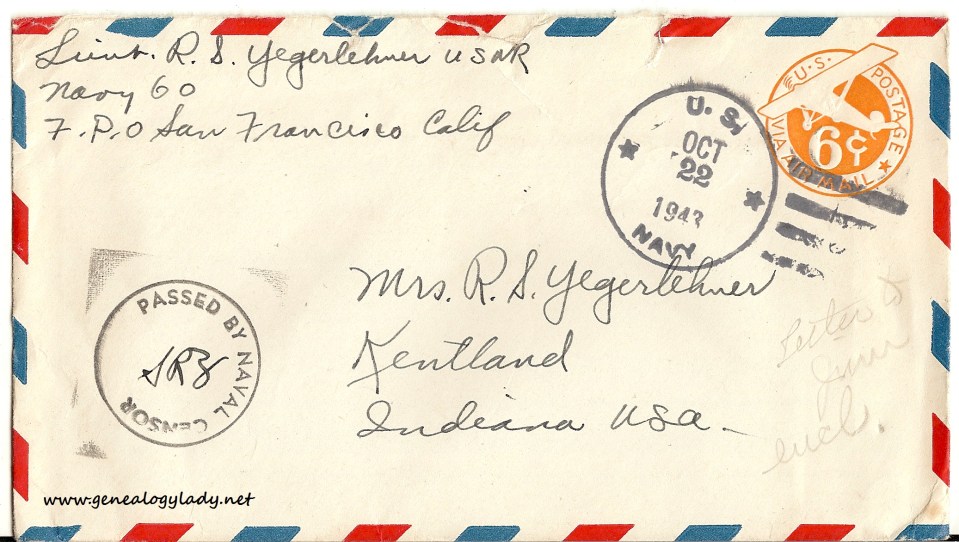 Lieut. R. S. Yegerlehner USNR
Navy 60
F.P.O San Francisco Calif
U.S. POSTAGE
6¢
VIA AIR MAIL
U. S.
OCT
22
1943
NAVY
Mrs. R. S. Yegerlehner
Kentland
Indiana USA.
PASSED BY NAVAL CENSOR
Letter to
encl.
www.genealogylady.net